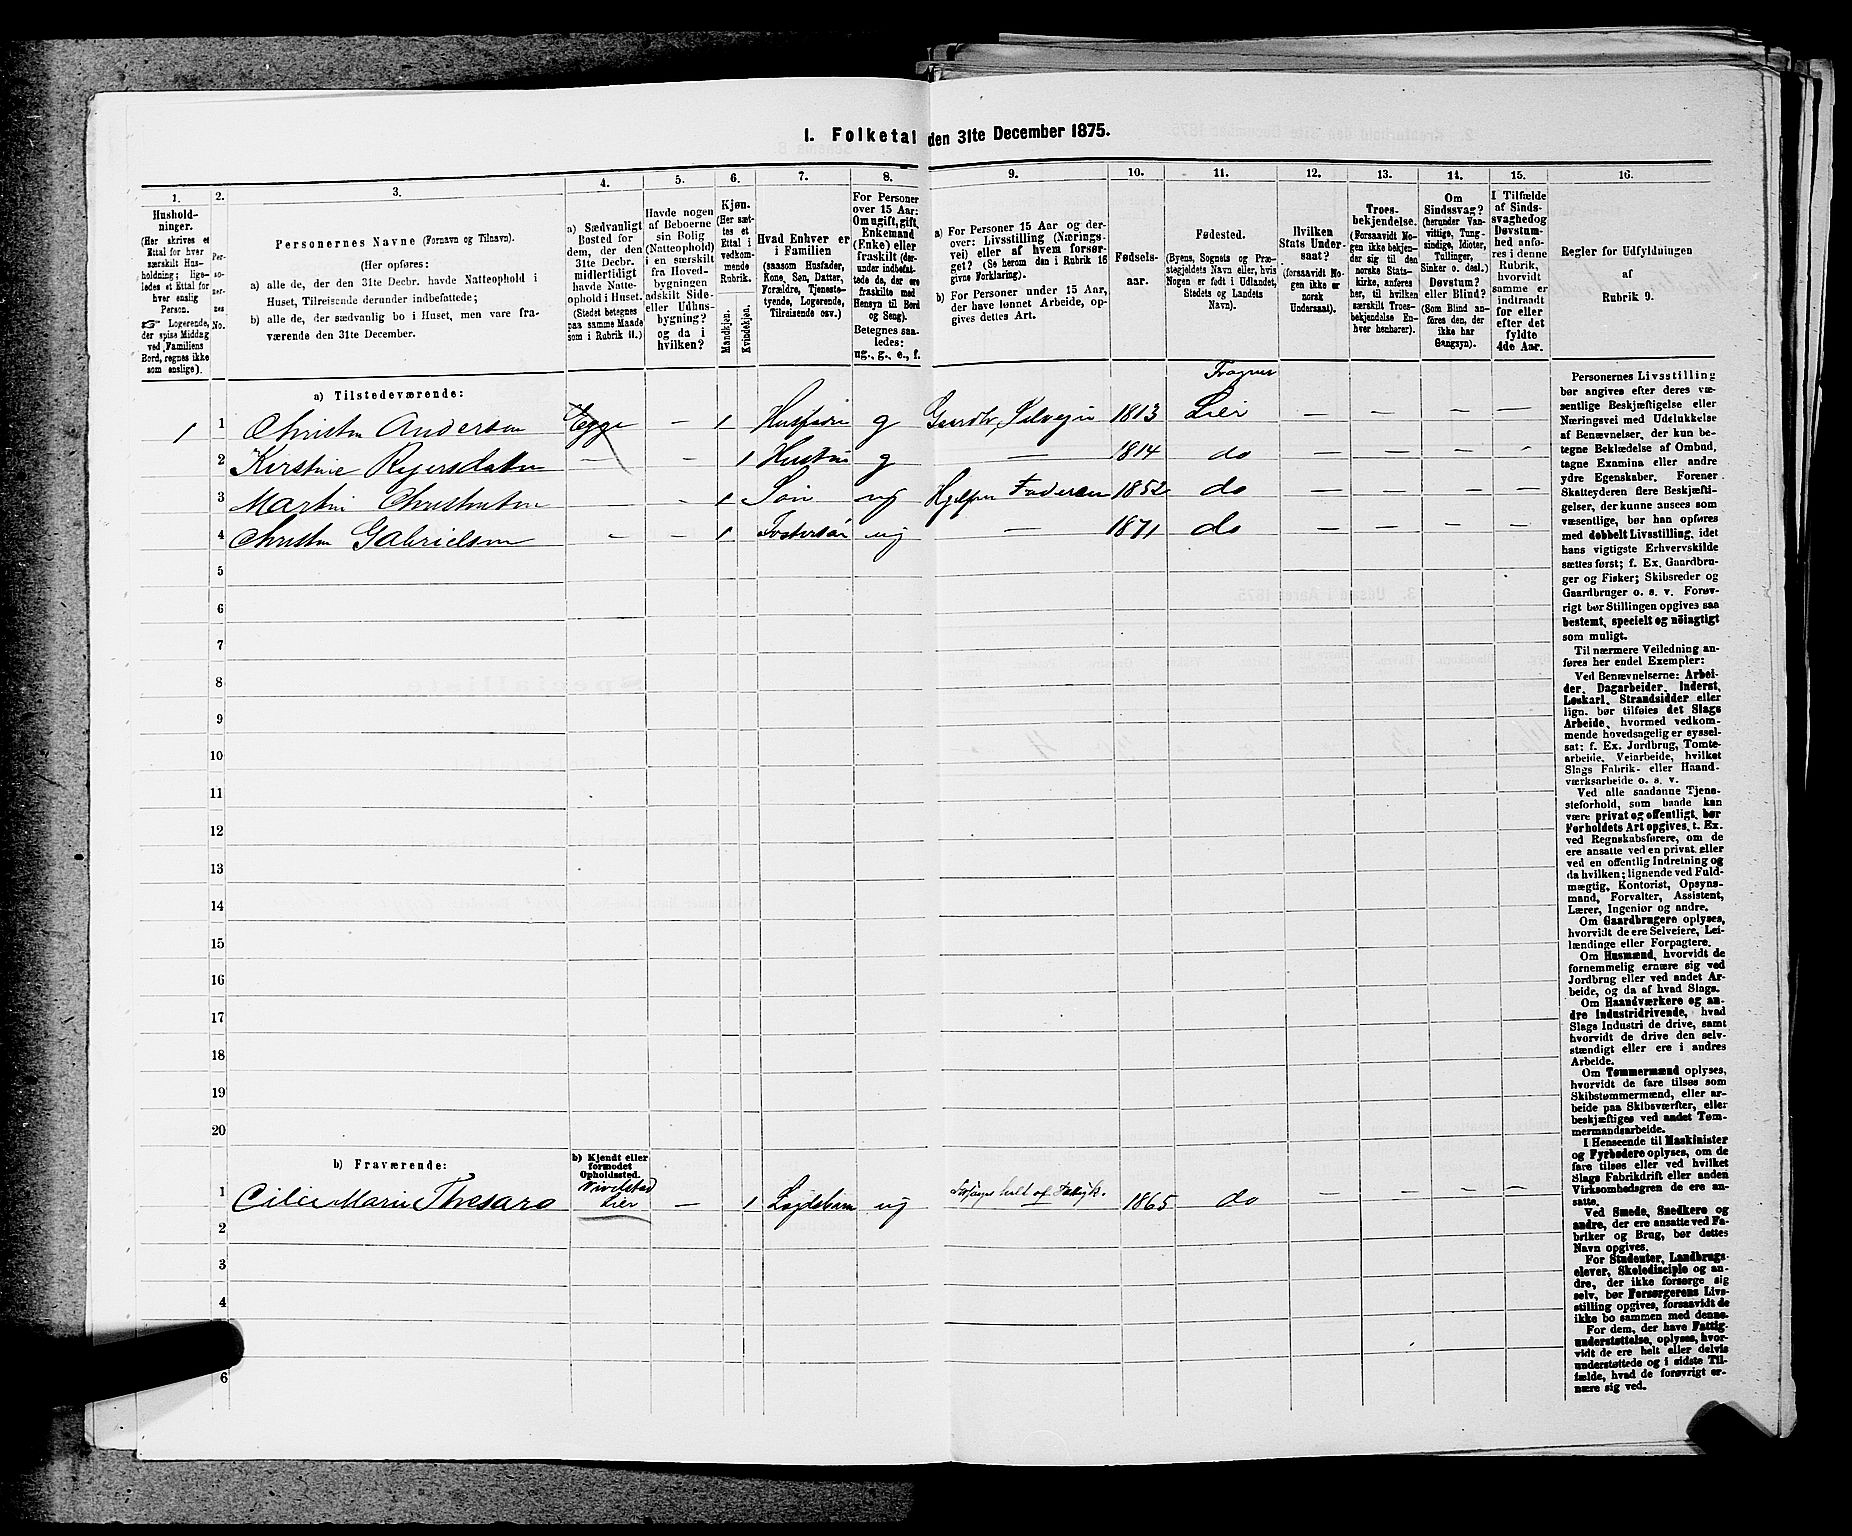 I. Folketal den 31te December 1875.
1.
Hushold-
ninger.
(Her skrives et
Ettal for hver
særskilt Hus-
holdning; lige-
ledes et Ettal for
hver enslig
Person.
☞ Logerende,
der spise Middag
ved Familiens
Bord, regnes ikke
som enslige).
2.
Per-
so-
ner-
nes
No.
3.
Personernes Navne (Fornavn og Tilnavn).
(Her opføres:
a) alle de, der den 31te Decbr. havde Natteophold i
Huset, Tilreisende derunder indbefattede;
b) alle de, der sædvanlig bo i Huset, men vare fra-
værende den 31te December.
4.
a) Sædvanligt
Bosted for
dem, der den
31te Decbr.
midlertidigt
havde Natte-
ophold i Huset.
(Stedet betegnes
paa samme Maade
som i Rubrik 11.)
5.
Havde nogen
af Beboerne
sin Bolig
(Natteophold)
i en særskilt
fra Hoved-
bygningen
adskilt Side-
eller Udhus-
bygning?
og da i
hvilken?
6.
Kjøn.
(Her sæt-
tes et
Ettal i
vedkom-
mende
Rubrik.
Mandkjøn.
Kvindekjøn.
7.
Hvad Enhver er
i Familien
(saasom Husfader,
Kone, Søn, Datter,
Forældre, Tjeneste-
tyende, Logerende,
Tilreisende osv.)
8.
For Personer
over 15 Aar:
Om ugift, gift,
Enkemand
(Enke) eller
fraskilt (der-
under indbefat-
tede de, der ere
fraskilte med
Hensyn til Bord
og Seng).
Betegnes saa-
ledes:
ug., g., e., f.
9.
a) For Personer 15 Aar og der-
over: Livsstilling (Nærings-
vei) eller af hvem forsør-
get? (Se herom den i Rubrik 16
givne Forklaring).
b) For Personer under 15 Aar,
der have lønnet Arbeide, op-
gives dettes Art.
10.
Fødsels-
aar.
11.
Fødested.
(Byens, Sognets og Præ-
stegjeldets Navn eller, hvis
Nogen er født i Udlandet,
Stedets og Landets
Navn).
12.
Hvilken
Stats Under-
saat?
(forsaavidt No-
gen ikke er
norsk
Undersaat).
13.
Troes-
bekjendelse.
(Forsaavidt No-
gen ikke bekjen-
der sig til den
norske Stats-
kirke, anføres
her, til hvilken
særskilt Troes-
bekjendelse En-
hver henhører).
14.
Om
Sindssvag?
(herunder Van-
vittige, Tung-
sindige, Idioter,
Tullinger,
Sinker o. desl.)
Døvstum?
eller Blind?
(Som Blind an-
føres den, der
ikke har
Gangsyn).
15.
I Tilfælde
af Sinds-
svaghed og
Døvstum-
hed anfø-
res i denne
Rubrik,
hvorvidt
samme er
indtraadt
før eller
efter det
fyldte
4de Aar.
16.
Regler for Udfyldningen
af
Rubrik 9.
a) Tilstedeværende:
Tragner
1 1 Christen Andersen Egge — 1 Husfader g Gaardbr. Selveier 1813 Lier — — — —
2 Kirstine Reiersdatter — — 1 Hustru g — 1814 do — — — -
3 Martin Christensen — 1 Søn ug Hjelper Faderen 1852 do — — — —
4 Christen Gabrielsen — — 1 Fostersøn ug — 1871 do — — — —
5
6
7
8
9
10
11
12
13
14
15
16
17
18
19
20
b) Fraværende:
b) Kjendt eller
formodet
Opholdssted.
1 Cilie Marie Thesaro Lier — 1 Lægdsbarn ug Forsørges helt af Fattigk. 1865 do — — — —
2
3
4
6
Personernes Livsstilling
bør angives efter deres væ-
sentlige Beskjæftigelse eller
Næringsvei med Udelukkelse
af Benævnelser, der kun be-
tegne Beklædelse af Ombud,
tagne Examina eller andre
ydre Egenskaber. Forener
Skatteyderen flere Beskjæfti-
gelser, der kunne ansees som
væsentlige, bør han opføres
med dobbelt Livsstilling, idet
hans vigtigste Erhvervskilde
sættes først; f. Ex. Gaardbru-
ger og Fisker; Skibsreder og
Gaardbruger o. s. v. Forøv-
rigt bør Stillingen opgives saa
bestemt, specielt og nöiagtigt
som muligt.
Til nærmere Veiledning an-
føres her endel Exempler:
Ved Benævnelserne: Arbei-
der, Dagarbeider, Inderst,
Løskarl, Strandsidder eller
lign. bør tilføies det Slags
Arbeide, hvormed vedkom-
mende hovedsagelig er syssel-
sat; f. Ex. Jordbrug, Tomte-
arbeide, Veiarbeide, hvilket
Slags Fabrik- eller Haand-
værksarbeide o. s. v.
Ved alle saadanne Tjene-
steforhold, som baade kan
være privat og offentligt, bør
Forholdets Art opgives, t. Ex.
ved Regnskabsførere, om de
ere ansatte ved en privat eller
ved en offentlig Indretning og
da hvilken; lignende ved Fuld-
mægtig, Kontorist, Opsyns-
mand, Forvalter, Assistent,
Lærer, Ingeniør og andre.
Om Gaardbrugere oplyses,
hvorvidt de ere Selveiere, Lei-
lændinge eller Forpagtere.
Om Husmænd, hvorvidt de
fornemmelig ernære sig ved
Jordbrug eller ved andet Ar-
beide, og da af hvad Slags.
Om Haandværkere og an-
dre Industridrivende, hvad
Slags Industri de drive, samt
hvorvidt de drive den selv-
stændigt eller ere i andres
Arbeide.
Om Tømmermænd oplyses,
hvorvidt de fare tilsøs som
Skibstømmermænd, eller ar-
beide paa Skibsværfter, eller
beskjæftiges ved andet Tøm-
mermandsarbeide.
I Henseende til Maskinister
og Fyrbødere oplyses, om de
fare tilsøs eller ved hvilket
Slags Fabrikdrift eller anden
Virksomhedsgren de ere an-
satte.
Ved Smede, Snedkere og
andre, der ere ansatte ved Fa-
briker og Brug, bør dettes
Navn opgives.
For Studenter, Landbrugs-
elever, Skoledisciple og an-
dre, der ikke forsørge sig
selv, bør Forsørgerens Livs-
stilling opgives, forsaavidt de
ikke bo sammen med denne.
For dem, der have Fattig-
understøttelse, oplyses, hvor-
vidt de ere helt eller delvis
understøttede og i sidste Til-
fælde, hvad de forøvrigt er-
nære sig ved.